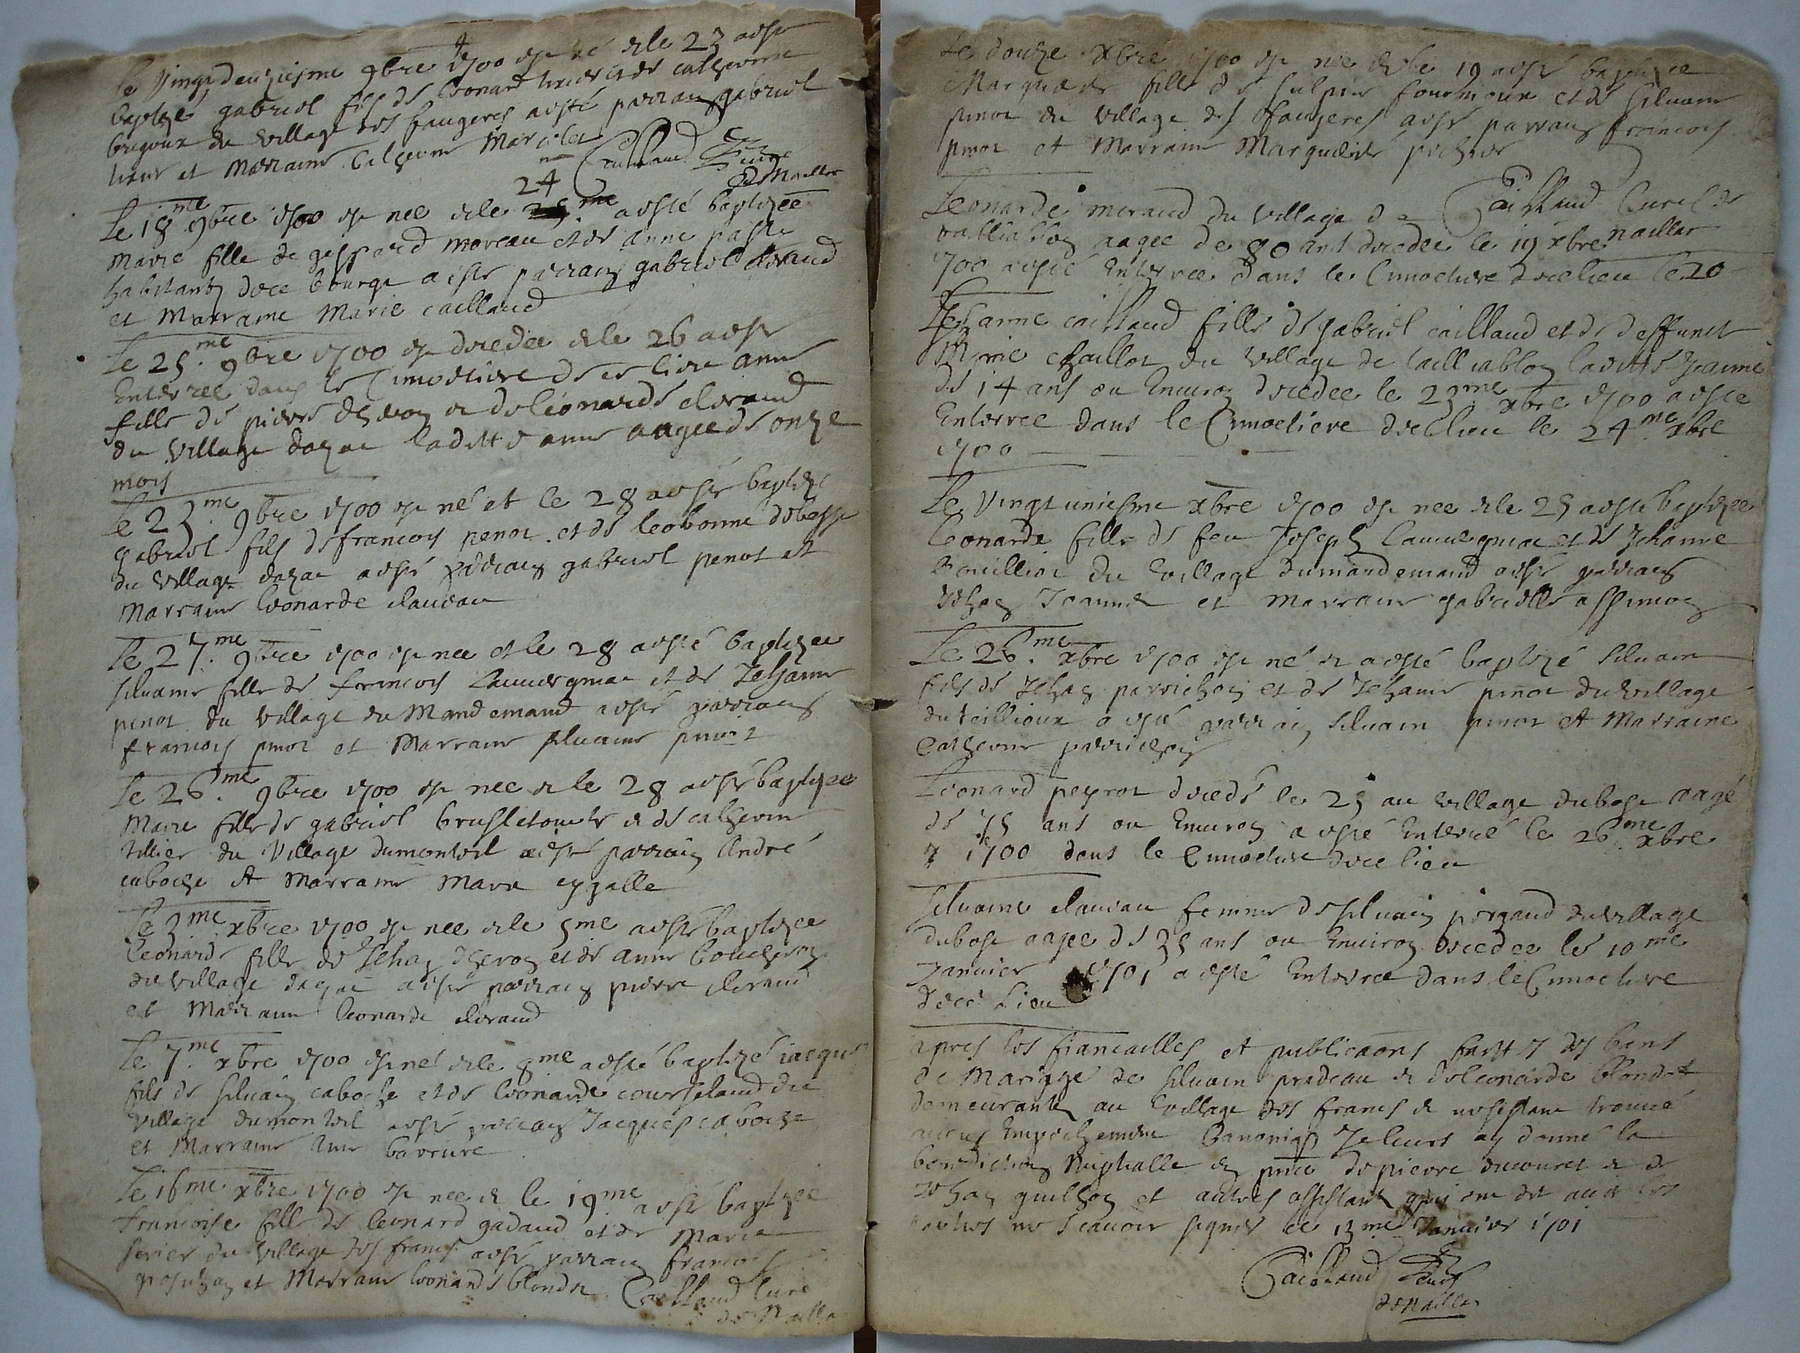 Le vingtdeuziesme 9bre 1700 est né et le 23 a esté
baptizé gabriel fils de leonard et de catherine
brigoux du village des faugeres a esté parrain gabriel
et Marraine Catherine
24 Caillaud Curé
de Naillat
Le 18me 9bre 1700 est nee et le a esté baptizee
Marie fille de gaspard moreau et de anne
habitants de ce bourg a esté parrain gabriel
et Marraine Marie caillaud
Le 25.me 9bre 1700 est decedee et le 26 a esté
Enterree dans le Cimoetiere de ce lieu anne
fille de pierre et de leonarde
du village dazac laditte anne aagee de onze
mois
Le 23.me 9bre 1700 est né et le 28 a esté baptizé
gabriel fils de francois penot et de leobonne
du village dazac a esté parrain gabriel penot et
Marraine leonarde claveau
Le 27.me 9bre 1700 est nee et le 28 a esté baptizee
silvaine fille de francois Lauvergniac et de Jehanne
pinot du village du Mondemaud a esté parrain
francois pinot et Marraine silvaine pinot
Le 26.me 9bre 1700 est nee et le 28 a esté baptizee
Marie fille de gabriel et de catherine
tillier du village dumonteil a esté parrain André
caboche et Marraine Marie
Le 3me xbre 1700 est nee et le 5me a esté baptizee
Leonarde fille de Jehan et de anne
du village dazac a esté parrain pierre
et Marraine leonarde
Le 7.me xbre 1700 est né et le 8me a esté baptizé iacques
fils de silvain caboche et de leonarde du
village dumonteil a esté parrain Jacques caboche
et Marraine anne
Le 16me xbre 1700 est nee et le 19me a esté baptizee
francoise fille de leonard gadaud et de Marie
du village des francs a esté parrain francois
et Marraine leonarde blondet Caillaud Curé
de Naillat
Le douze xbre 1700 est nee et le 19 a esté baptizee
Marguerite fille de sulpice fournioux et de silvaine
pinot du village des faugeres a esté parrain francois
pinot et Marraine Marguerite
Leonarde du village de Caillaud Curé de
Naillat
aagee de 80 ans decedee le 19 xbre
1700 a esté Enterree dans le Cimoetiere de ce lieu le 20
Jehanne caillaud fille de gabriel caillaud et de deffunct
Marie chaillot du village de laditte Jeanne
de 14 ans ou Environ decedee le 23me xbre 1700 a esté
Enterree dans le Cimoetiere de ce lieu le 24me xbre
1700
Le vingt uniesme xbre 1700 est nee et le 25 a esté baptizee
leonarde fille de feu Joseph Lauvergniac et de Jehanne
du village dumondemaud a esté parrain
Jehan et Marraine gabrielle
Le 26.me xbre 1700 est né et a esté baptizé silvain
fils de Jehan parrichon et de Jehanne pinot du village
a esté parrain silvain pinot et Marraine
Catherine parrichon
Leonard peyrot decedé le 25 au village dubost aagé
de 75 ans ou Environ a esté Enterré le 26me xbre
1700 dans le Cimoetiere de ce lieu
silvaine claveau femme de silvain du village
dubost aagee de 35 ans ou Environ decedee le 10me
Janvier 1701 a esté Enterree dans le Cimoetiere
de ce Lieu
apres les fiancailles et publicaons faittes des bans
de Mariage de silvain pradeau et de leonarde blondet
demeurants au village des francs et trouvé
aucun Empeschement Canoniq Je leurs ay donné la
benediction Nuptialle en pnce de pierre et de
Jehan et autres assistants qui ont dit avec les
parties ne scavoir signer ce 13me Janvier 1701
Caillaud Curé
de Naillat